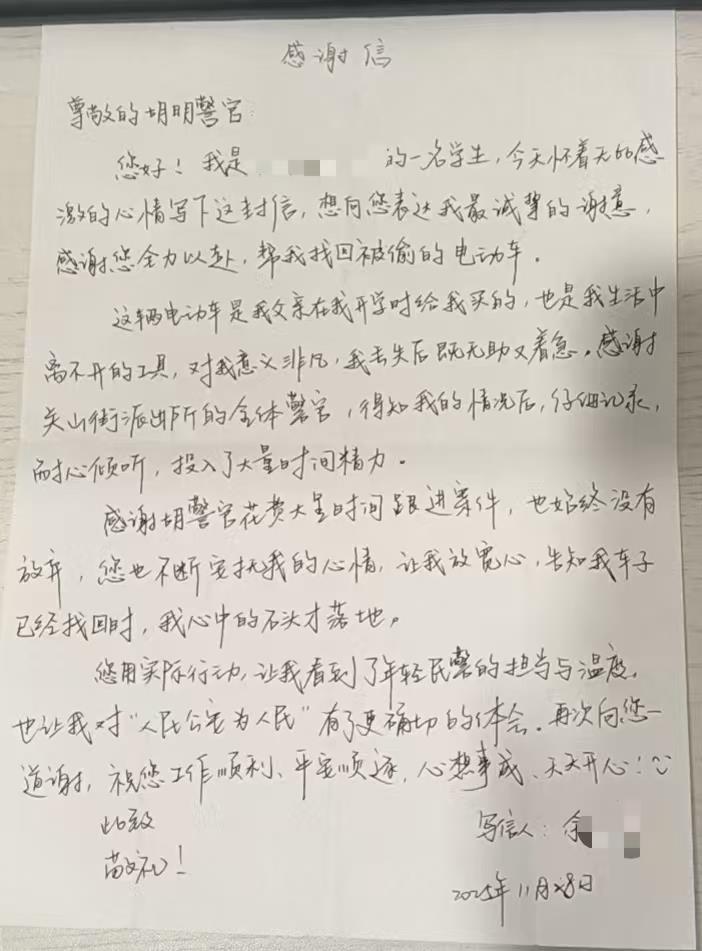 感谢信
尊敬的胡明警官:
您好！我是 的一名学生，今天怀着无比感
激的心情写下这封信，想向您表达我最诚挚的谢意，
感谢您全力以赴，帮我找回被偷的电动车．
这辆电动车是我父亲在我开学时给我买的，也是我生活中
离不开的工具，对我意义非凡，我丢失后既无助又着急。感谢
关山街派出所的全体警官，得知我的情况后，仔细记录，
耐心倾听，投入了大量时间精力．
感谢胡警官花费大量时间跟进案件，也始终没有
放弃，您也不断安抚我的心情，让我放宽心，告知我车子
已经找回时，我心中的石头才落地。
您用实际行动，让我看到了年轻民警的担当与温度，
也让我对“人民公安为人民”有了更确切的体会．再次向您一
道谢，祝您工作顺利、平安顺遂，心想事成、天天开心！
此致
敬礼！
写信人：余
2025年11月28日